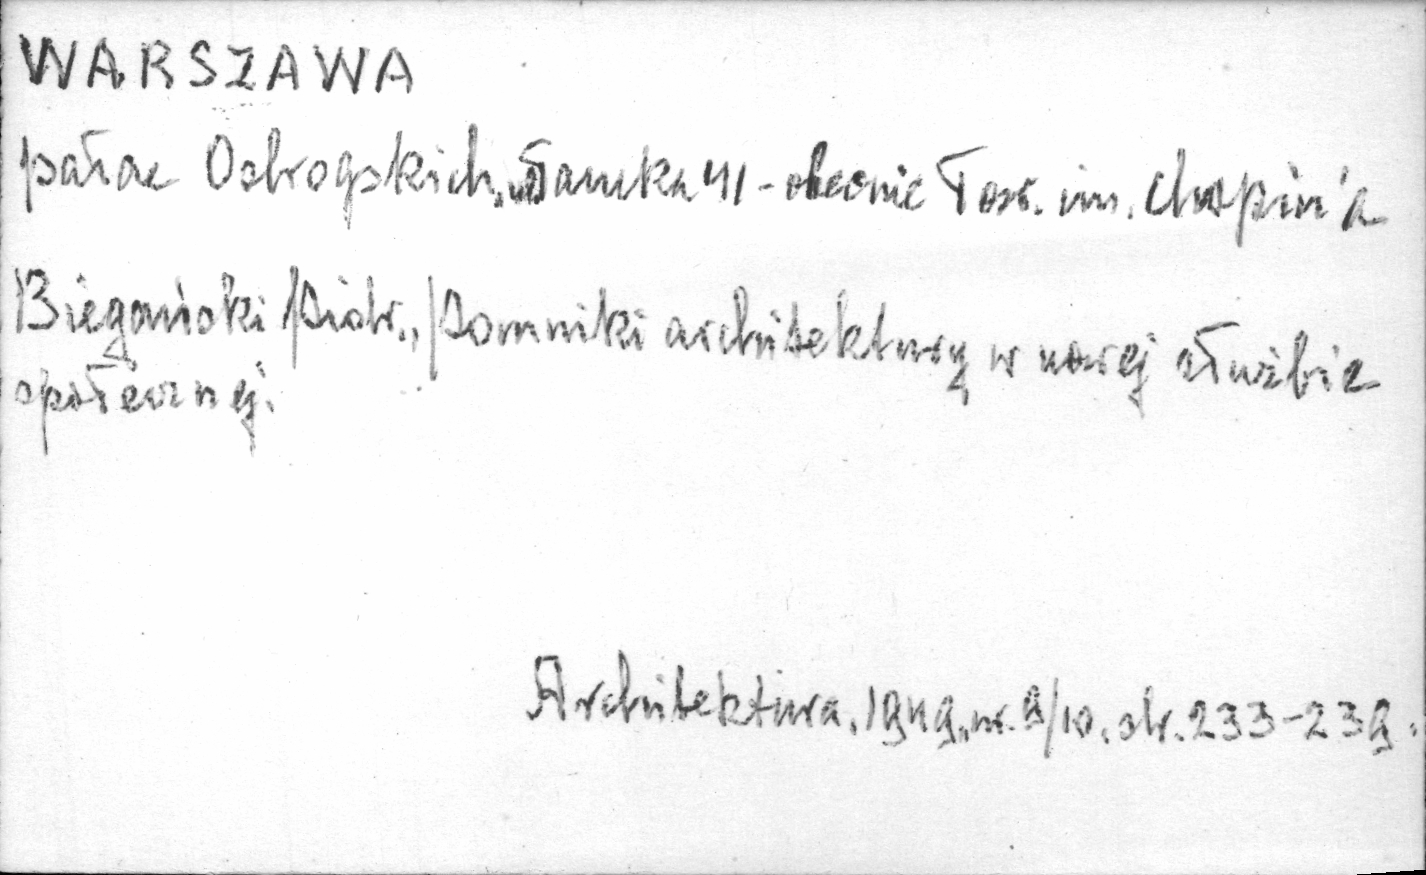 WARSZAWA
pałac Ostrogskich, ul. Tamka 41 - obecnie Tow. im. Chopin'a
Biegański Piotr., Pomniki architektury w nowej służbie
społecznej.
Architektura, 1949, nr. 9/10, str. 233-239.